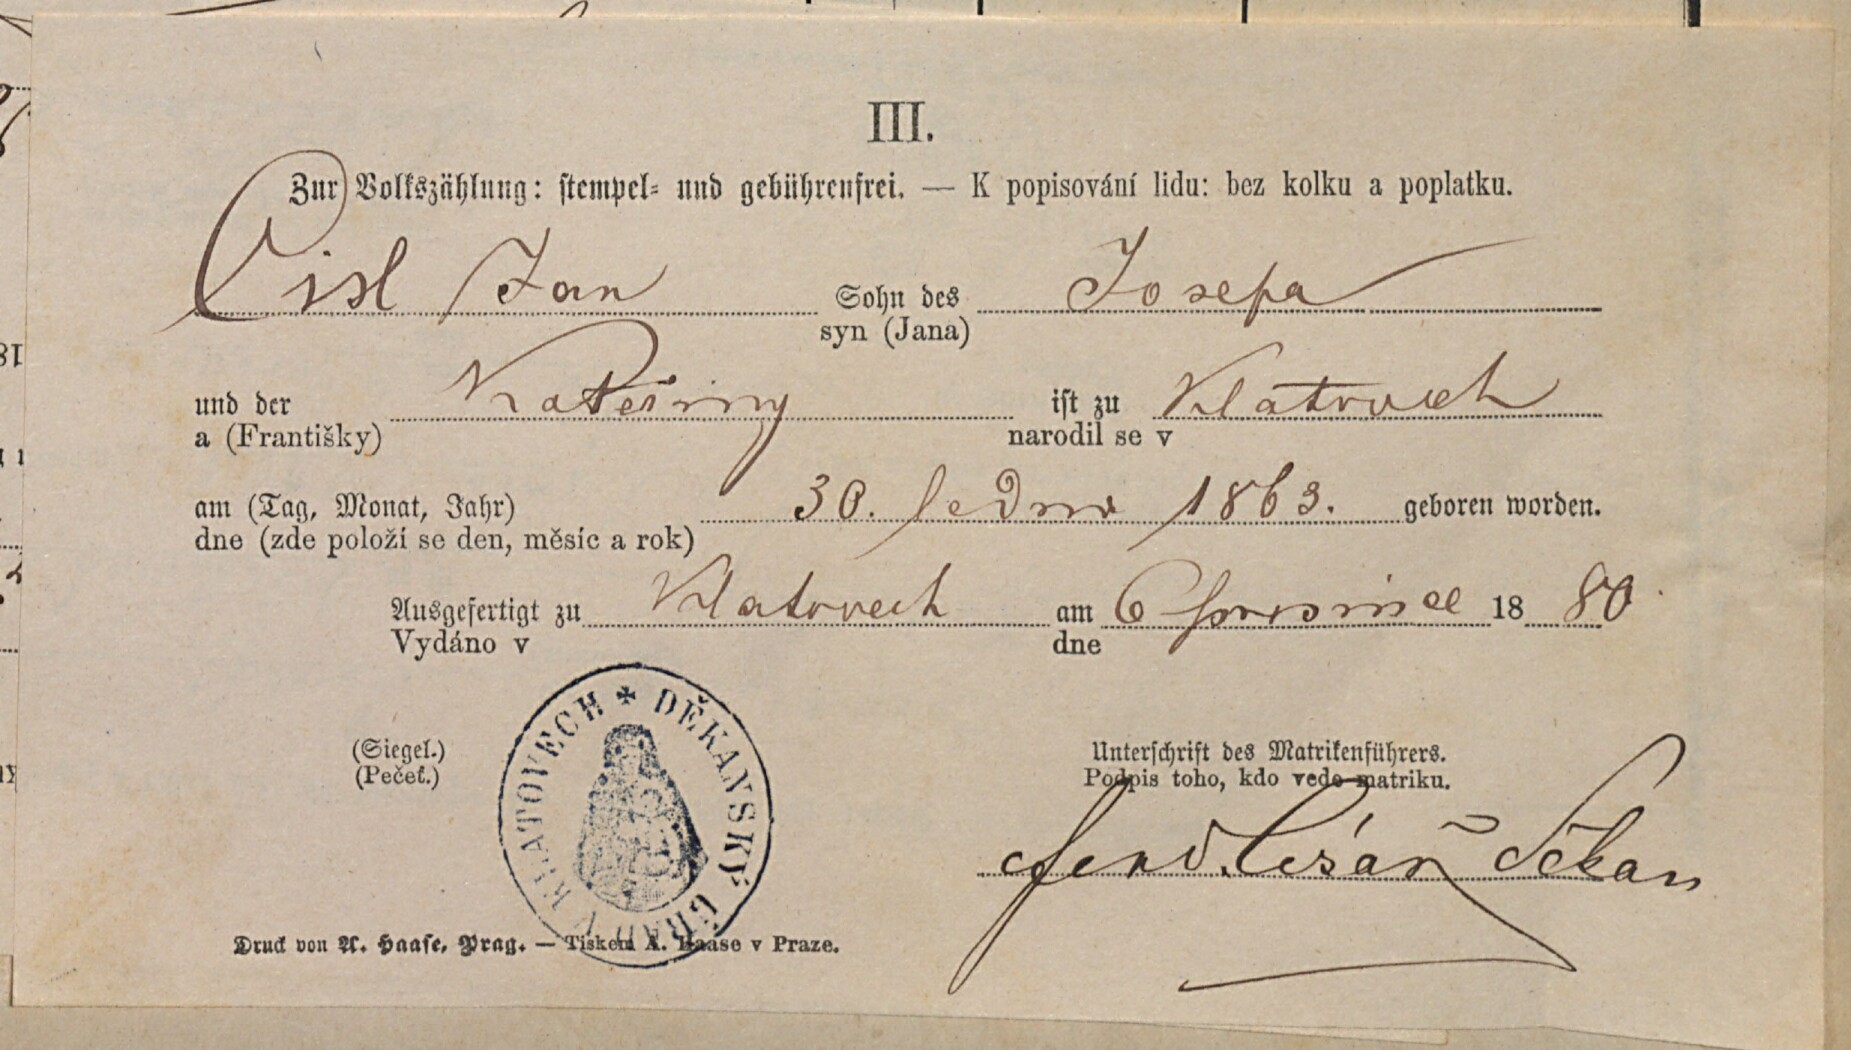 III.
Zur Volkszählung: stempel- und gebührenfrei. — K popisování lidu: bez kolku a poplatku.
Cisl Jan Sohn des Josepa
syn (Jana)
und der Kateřiny ist zu Klatovech
a (Františky) narodil se v
am (Tag, Monat, Jahr) 30. ledna 1863. geboren worden.
dne (zde položí se den, měsíc a rok)
Ausgefertigt zu Klatovech am 6 prosince 18 80
Vydáno v dne
DĚKANSKÝ ÚŘAD V KLATOVECH
(Siegel.) Unterschrift des Matrikenführers.
(Pečeť.) Podpis toho, kdo vede matriku.
Císař děkan
Druck von A. Haase, Prag. — Tiskem A. Haase v Praze.